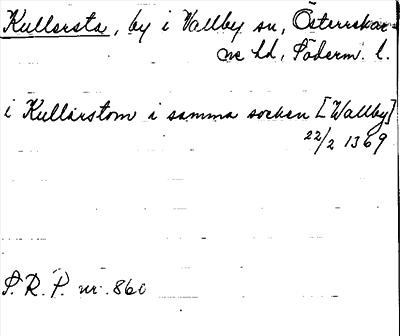 Kullersta, by i Vallby sn, Österrekar-
ne hd, Söderm. l.
i Kullarstom i samma socken [Wallby]
22/2 1369
S. R. P. nr. 860